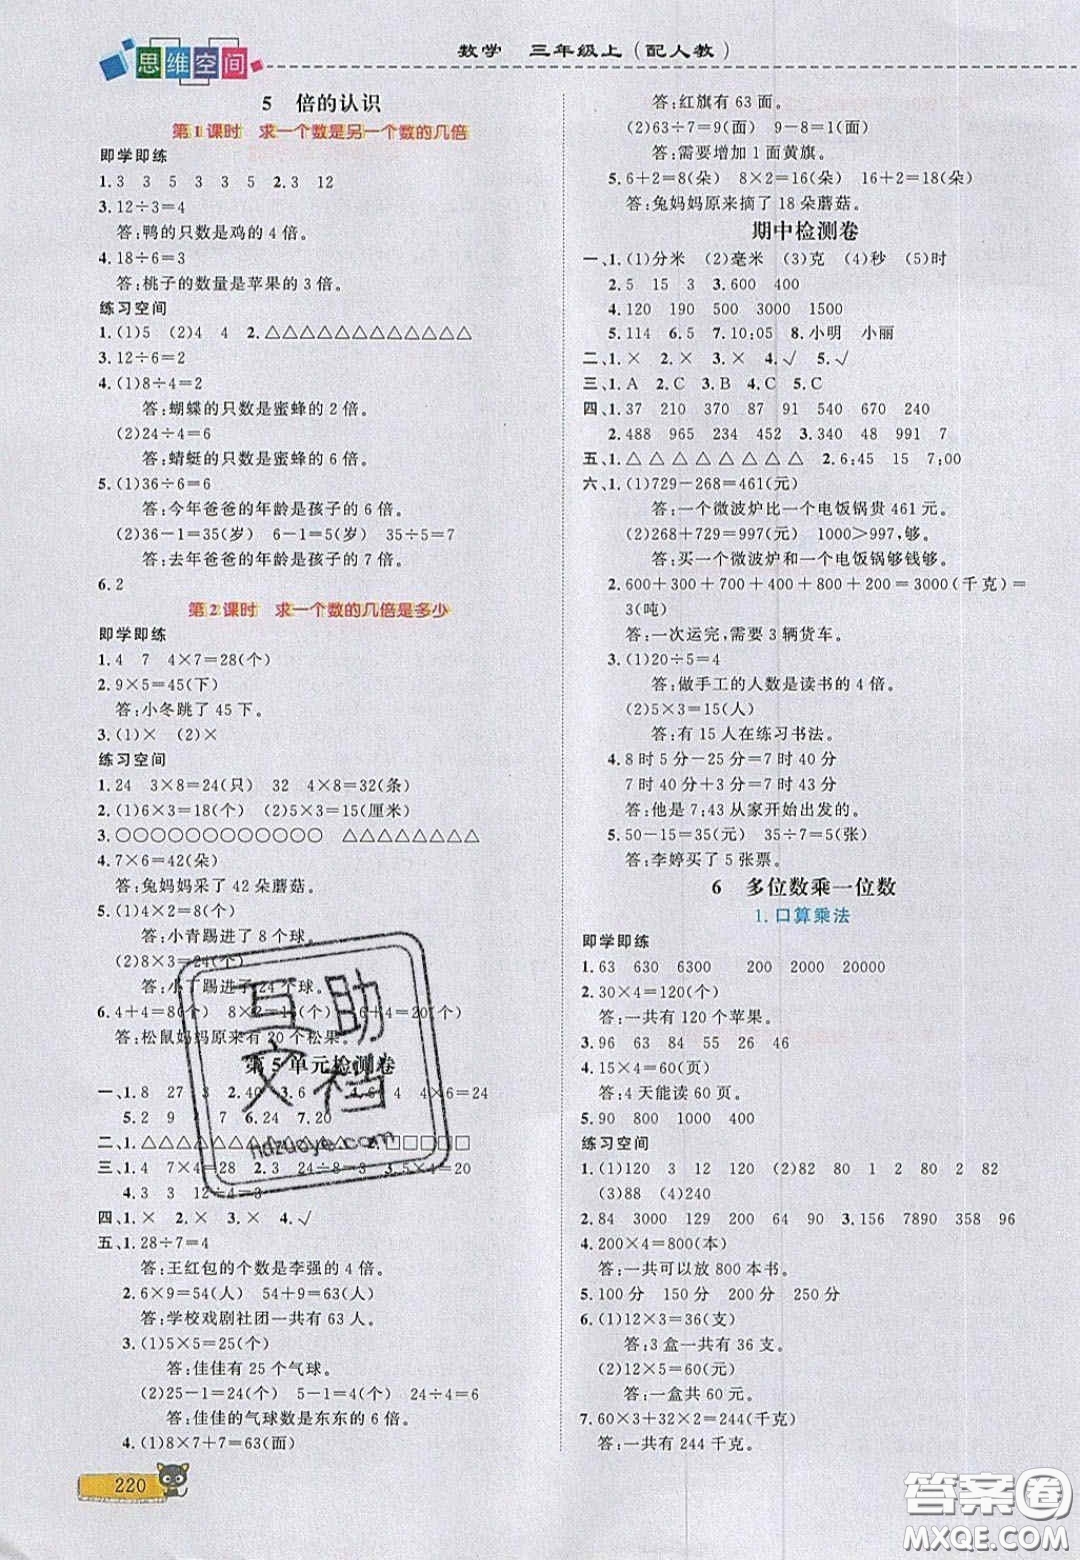 思维空间
数学 三年级上(配人教)
5 倍的认识
第1课时 求一个数是另一个数的几倍
即学即练
1.3 3 5 3 3 5 2.3 12
3.12÷3=4
答:鸭的只数是鸡的4倍。
4.18÷6=3
答:桃子的数量是苹果的3倍。
练习空间
1.(1)5 (2)4 4 2.△△△△△△△△△△△△
3.12÷6=2
4.(1)8÷4=2
答:蝴蝶的只数是蜜蜂的2倍。
(2)24÷4=6
答:蜻蜓的只数是蜜蜂的6倍。
5.(1)36÷6=6
答:今年爸爸的年龄是孩子的6倍。
(2)36-1=35(岁) 6-1=5(岁) 35÷5=7
答:去年爸爸的年龄是孩子的7倍。
6.2
第2课时 求一个数的几倍是多少
即学即练
1.4 7 4×7=28(个)
2.9×5=45(下)
答:小冬跳了45下。
3.(1)× (2)×
练习空间
1.24 3×8=24(只) 32 4×8=32(条)
2.(1)6×3=18(个) (2)5×3=15(厘米)
3.○○○○○○○○○○○○ △△△△△△△△
4.7×6=42(朵)
答:兔妈妈采了42朵蘑菇。
5.(1)4×2=8(个)
答:小青踢进了8个球。
(2)8×3=24(个)
答:小丁踢进了24个球。
6.4+4=8(个) 8×2=16(个) 16+4=20(个)
答:松鼠妈妈原来有20个松果。
第5单元检测卷
一、1.8 27 3 2.40 3.6 4 4 6×4=24
5.2 9 6.24 7.20
二、1.△△△△△△△△△△△△ 2.□□□□□□
三、1.4 7×4=28 2.3 24÷8=3 3.5×4=20
4.3 3 12÷4=3
四、1.× 2.× 3.× 4.√
五、1.28÷7=4
答:王红包的个数是李强的4倍。
2.6×9=54(人) 54+9=63(人)
答:学校戏剧社团一共有63人。
3.(1)5×5=25(个)
答:佳佳有25个气球。
(2)25-1=24(个) 5-1=4(个) 24÷4=6
答:佳佳的气球数是东东的6倍。
4.(1)8×7+7=63(面)
220
答:红旗有63面。
(2)63÷7=9(面) 9-8=1(面)
答:需要增加1面黄旗。
5.6+2=8(朵) 8×2=16(朵) 16+2=18(朵)
答:兔妈妈原来摘了18朵蘑菇。
期中检测卷
一、1.(1)分米 (2)毫米 (3)克 (4)秒 (5)时
2.5 15 3 3.600 400
4.120 190 500 3000 1500
5.114 6.5 7.10:05 8.小明 小丽
二、1.× 2.× 3.× 4.√ 5.√
三、1.A 2.C 3.B 4.C 5.C
四、1.37 210 370 87 91 540 670 240
2.488 965 234 452 3.340 48 991 7
五、1.△△△△△△△△ 2.6:45 15 7:00
六、1.(1)729-268=461(元)
答:一个微波炉比一个电饭锅贵461元。
(2)268+729=997(元) 1000>997,够。
答:买一个微波炉和一个电饭锅够钱够。
2.600+300+700+400+200+800=3000(千克)=
3(吨)
答:一次运完,需要3辆货车。
3.(1)20÷5=4
答:做手工的人数是读书的4倍。
(2)5×3=15(人)
答:有15人在练习书法。
4.8时5分-25分=7时40分
7时40分+3分=7时43分
答:他是7:43从家开始出发的。
5.50-15=35(元) 35÷7=5(张)
答:李婷买了5张票。
6 多位数乘一位数
1.口算乘法
即学即练
1.63 630 6300 200 2000 20000
2.30×4=120(个)
答:一共有120个苹果。
3.96 63 55 26 84 46
4.15×4=60(页)
答:4天能读60页。
5.90 800 1000 400
练习空间
1.(1)120 3 12 120 (2)82 80 1 2 80 2 82
(3)88 (4)240
2.84 3000 129 200 64 90 3.156 7890 358 96
4.200×4=800(本)
答:一共可以放800本书。
5.100分 150分 200分 250分
6.(1)12×3=36(支)
答:3盒一共有36支。
(2)12×5=60(元)
答:一盒共60元。
7.60×3+32×2=244(千克)
答:一共有244千克。
互助
文档
hdzuoye.com
答案圈
MXQE.COM